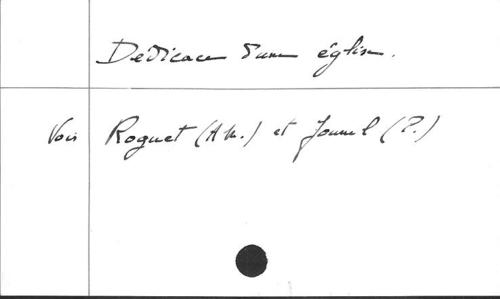 Dédicace d'une église.
Voir Roguet (A M.) et Jounel (P.)